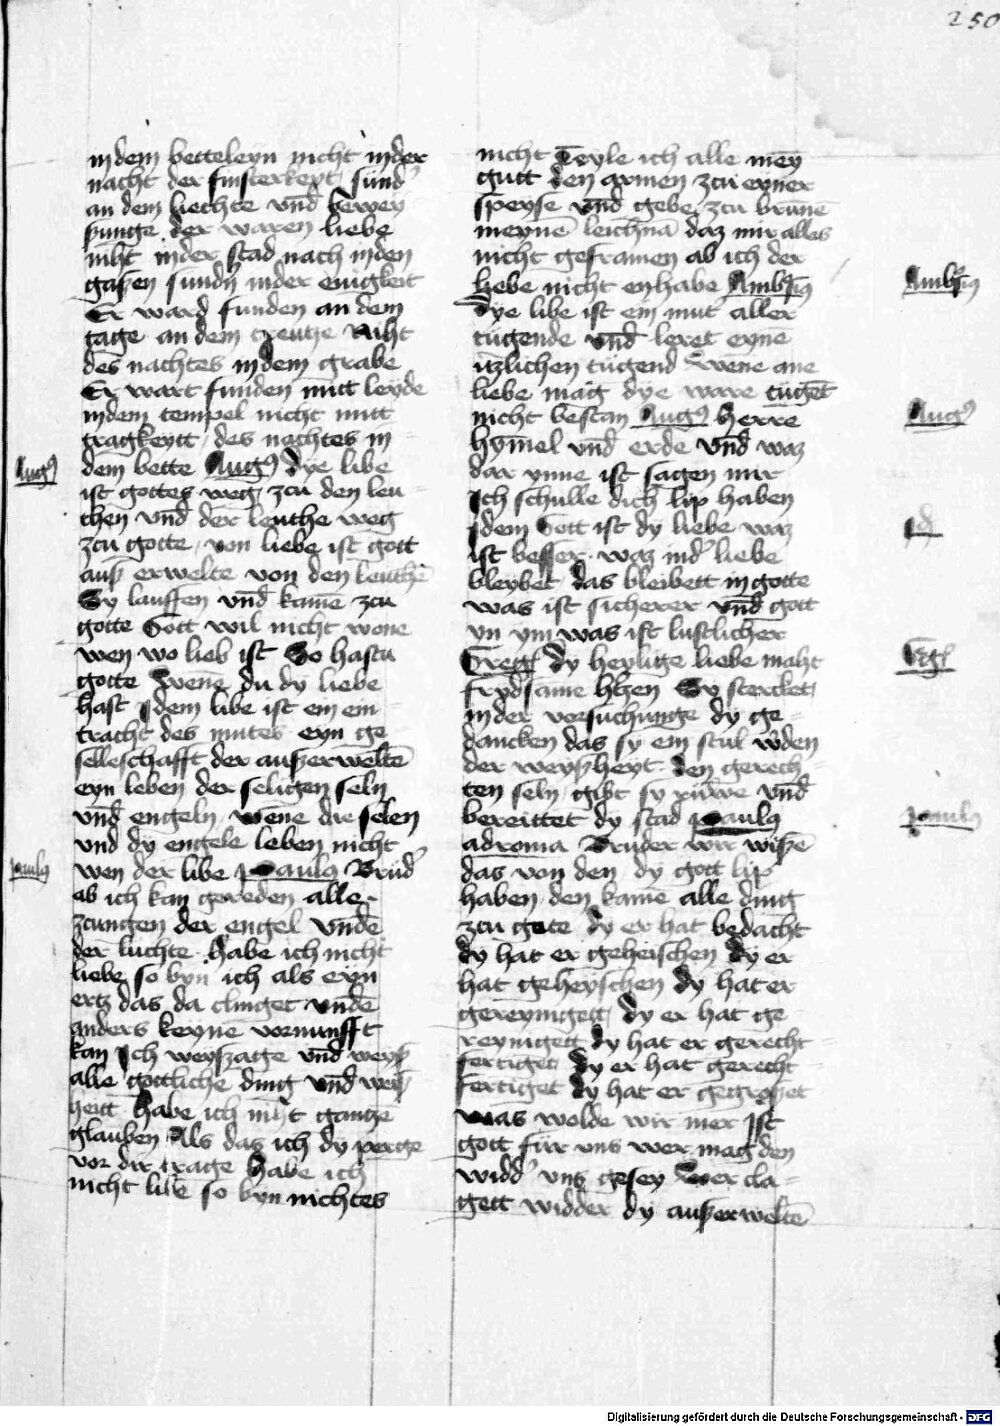 250
in dem betteleyn nicht in der
nacht der finsterkeyt sund'
an dem liechte vnd bewey
sunge der waren liebe
niht in der stad nach in den
gaßen sundn in der einigkeit
Er ward funden an dem
tage an dem creutze Niht
des nachtes in dem grabe
Er wart funden mitt leyde
in dem tempel nicht mitt
tragkeytt des nachtes in
dem bette Augꝰ dye libe
ist gottes weg zcu den leu-
then vnd der leuthe weg
zcu gotte von liebe ist gott
auß erwelte von den leuthē
Sy lauffen vnd kamē zcu
gotte Gott wil nicht wone
wen wo lieb ist So hastu
gotte Wene du dy liebe
hast Jdem libe ist ein ein-
tracht des mutes eyn ge-
selleschafft der außerweltē
eyn leben der seligen seln
vnd engeln wene die selen
vnd dy engele leben nicht
wen der libe paulꝰ Brud'
ab ich kan gereden alle
zcungen der engel vnde
der luchte habe ich nicht
liebe so byn ich als eyn
ertz das da clinget vnde
anders keynē vornunfft
kan Jch weyszage vnd weyß
alle gottliche ding vnd weyß-
heitt habe ich niht gantze
glauben Als das ich dy perge
vor dir trage habe ich
nicht libe so byn nichtes
Augꝰ
paulꝰ
nicht Teyle ich alle meȳ
gutt den armen zcu eyner
speyse vnd gebe zcu brūne
meynē leichnā daz mir alles
nicht geframen ab ich der
liebe nicht enhabe Ambꝰsiꝰ
Dye libe ist ein mut aller
tugende vnd leret eynē
itzlichen tugend Wene ane
liebe mag dye ware tugēt
nicht bestan Augꝰ herre
hymel vnd erde vnd waz
dar ynne ist sagen mir
Jch schulle dich lip haben
Jdem Gott ist dy liebe waz
ist besser waz in d' liebe
bleybet das bleibett in gotte
was ist sicherer vnd gott
yn ym was ist lustlicher
Greg dy heylige liebe maht
frydsame htzen Sy stercket
in der vorsuchunge dy ge-
dancken das sy ein stul wden
der weyßheyt den gerech-
ten seln gibt sy ruwe vnd
bereittet dy stad paulꝰ
ad roma Bruder wir wißē
das von den dy gott lip
haben den kamē alle ding
zcu gute dy er hat bedacht
dy hat er geheischen dy er
hat geheyschen dy hat er
gereynigett dy er hat ge-
reynigett dy hat er gerecht-
fertiget dy er hat gerecht-
fertiget dy hat er gegroßet
was wolde wir mer Jst
gott für vns wer mag den
widd' vns gesey Wer cla-
gett widder dy außerweltē
Ambꝰsiꝰ
Augꝰ
Jd
Greg
paulꝰ
Digitalisierung gefördert durch die Deutsche Forschungsgemeinschaft - DFG